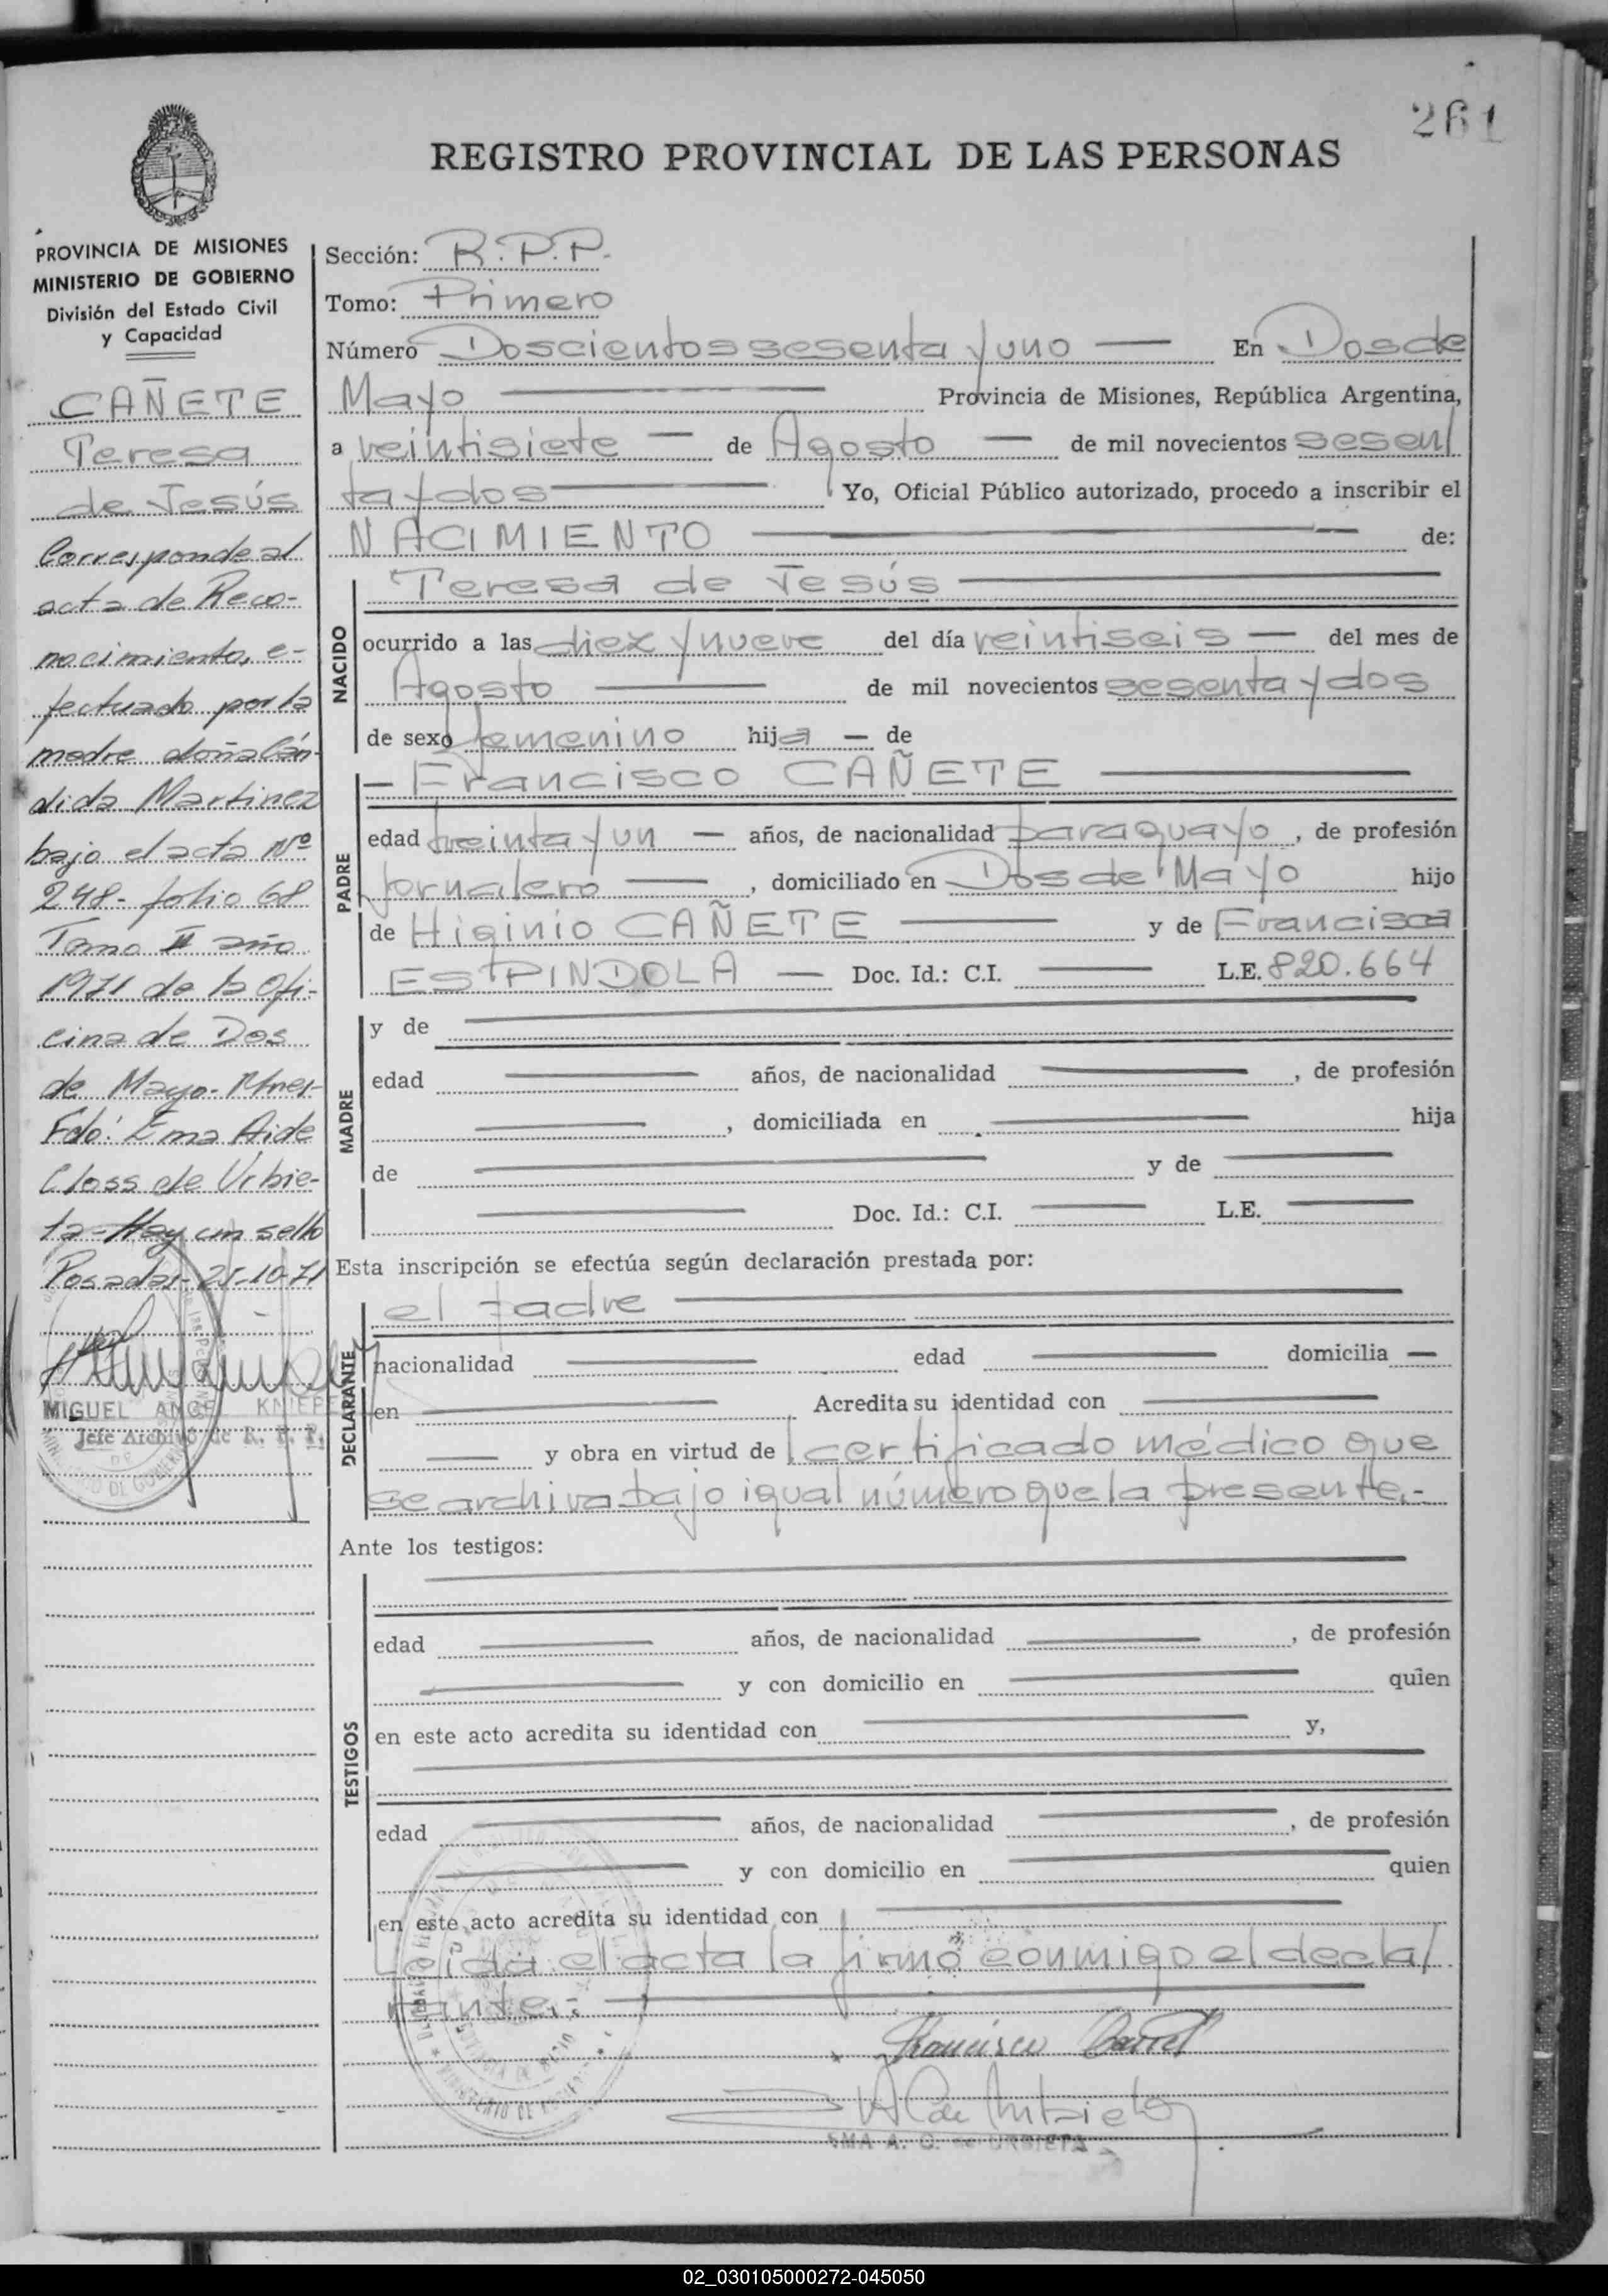 261
REGISTRO PROVINCIAL DE LAS PERSONAS
PROVINCIA DE MISIONES
MINISTERIO DE GOBIERNO
División del Estado Civil
y Capacidad
CAÑETE
Teresa
de Jesús
Corresponde al
acta de Reco-
nocimiento, e-
fectuado por la
madre doña Cán-
dida Martinez
bajo el acta Nº
248- folio 68
Tomo II año
1971 de la Ofi-
cina de Dos
de Mayo- Mnes-
Fdo: Ema Aide
Closs de Urbie-
ta- Hay un sello
Posadas- 25-10-71
MIGUEL ANGEL
Jefe Archivo de R. P. P.
Sección: R.P.P.
Tomo: Primero
Número Doscientos sesenta y uno — En Dos de
Mayo — Provincia de Misiones, República Argentina,
a veintisiete — de Agosto — de mil novecientos sesen/
ta y dos — Yo, Oficial Público autorizado, procedo a inscribir el
NACIMIENTO — de:
NACIDO
Teresa de Jesús —
ocurrido a las diez y nueve del día veintiseis — del mes de
Agosto — de mil novecientos sesenta y dos
de sexo femenino hija — de
PADRE
— Francisco CAÑETE —
edad treinta y un — años, de nacionalidad paraguayo, de profesión
Jornalero —, domiciliado en Dos de Mayo hijo
de Higinio CAÑETE — y de Francisca
ESPINDOLA — Doc. Id.: C.I. — L.E. 820.664
MADRE
y de —
edad — años, de nacionalidad —, de profesión
—, domiciliada en — hija
de — y de —
— Doc. Id.: C.I. — L.E. —
Esta inscripción se efectúa según declaración prestada por:
DECLARANTE
el padre —
nacionalidad — edad — domicilia —
en — Acredita su identidad con —
— y obra en virtud de l certificado médico que
se archiva bajo igual número que la presente.-
Ante los testigos:
TESTIGOS
edad — años, de nacionalidad —, de profesión
— y con domicilio en — quien
en este acto acredita su identidad con — y,
edad — años, de nacionalidad —, de profesión
— y con domicilio en — quien
en este acto acredita su identidad con —
Leída el acta la firmó conmigo el decla/
rante.- —
Francisco Cañet
EMA A. C. de URBIETA
02_030105000272-045050